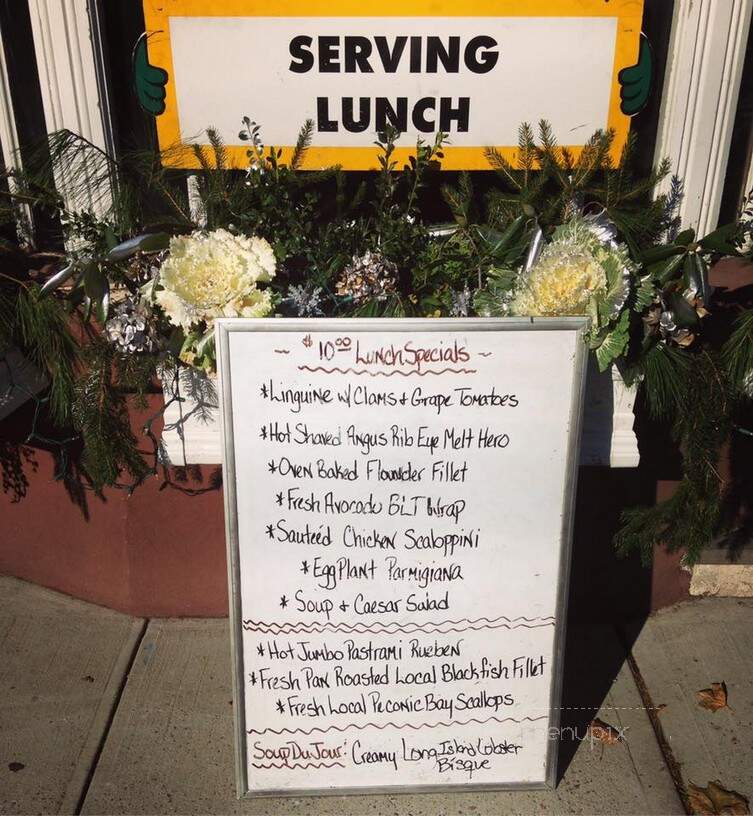 SERVING
LUNCH
~ $10.00 Lunch Specials ~
*Linguine w/ Clams & Grape Tomatoes
*Hot Shaved Angus Rib Eye Melt Hero
*Oven Baked Flounder Fillet
*Fresh Avocado BLT Wrap
*Sauteéd Chicken Scaloppini
*EggPlant Parmigiana
* Soup & Caesar Salad
*Hot Jumbo Pastrami Rueben
*Fresh Pan Roasted Local Blackfish Fillet
*Fresh Local Peconic Bay Scallops
Soup Du Jour: Creamy Long Island Lobster
Bisque
menupix